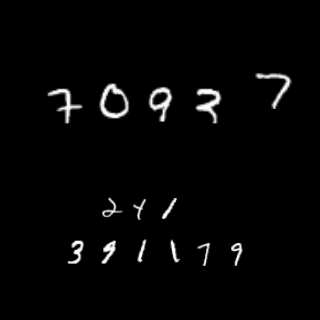 70937
241
391179